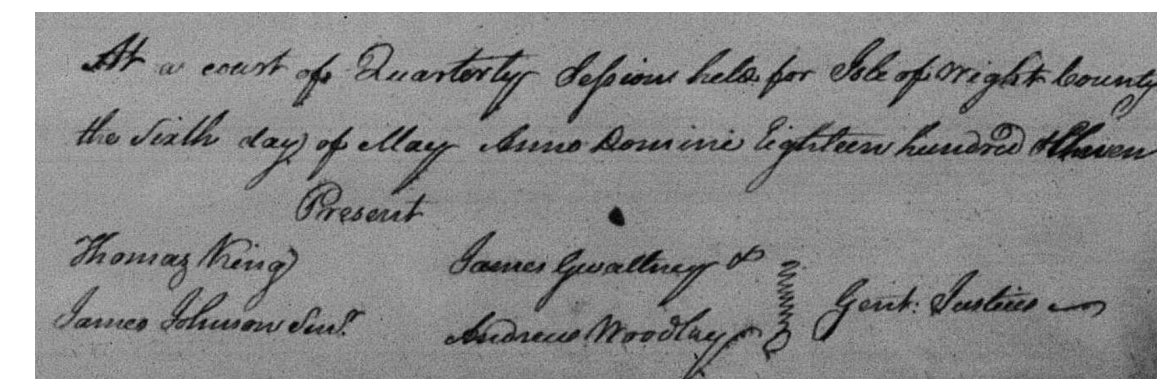 At a court of Quarterly Sessions held for Isle of Wright County
the Sixth day of May Anno Domini Eighteen hundred & Eleven
Present
Thomas King James Gwaltney &
James Johnson Senr. Andrew Woodley Gent: Justices